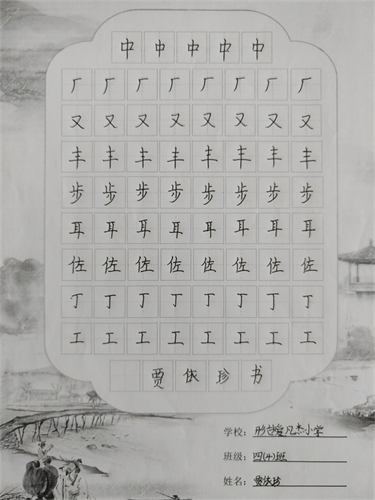 中中中中中
厂厂厂厂厂厂厂厂
又又又又又又又又
丰丰丰丰丰丰丰丰
步步步步步步步步
耳耳耳耳耳耳耳耳
佐佐佐佐佐佐佐佐
丁丁丁丁丁丁丁丁
工工工工工工工工
贾依珍书
学校：凡杰小学
班级：四(4)班
姓名：贾依珍